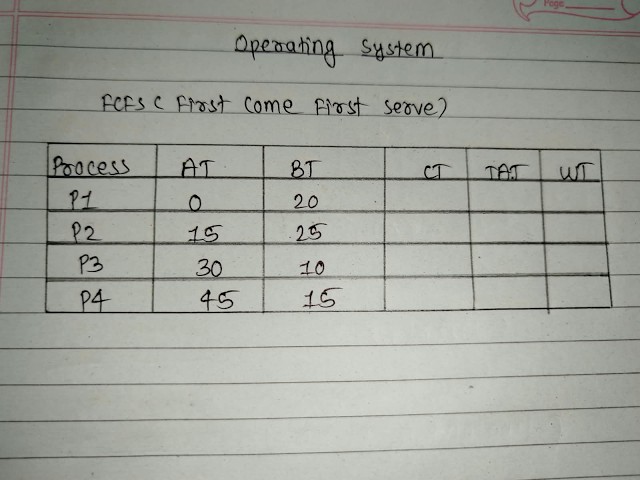 Page
Operating System
FCFS ( First Come First Serve)
Process AT BT CT TAT WT
P1 0 20
P2 15 25
P3 30 10
P4 45 15